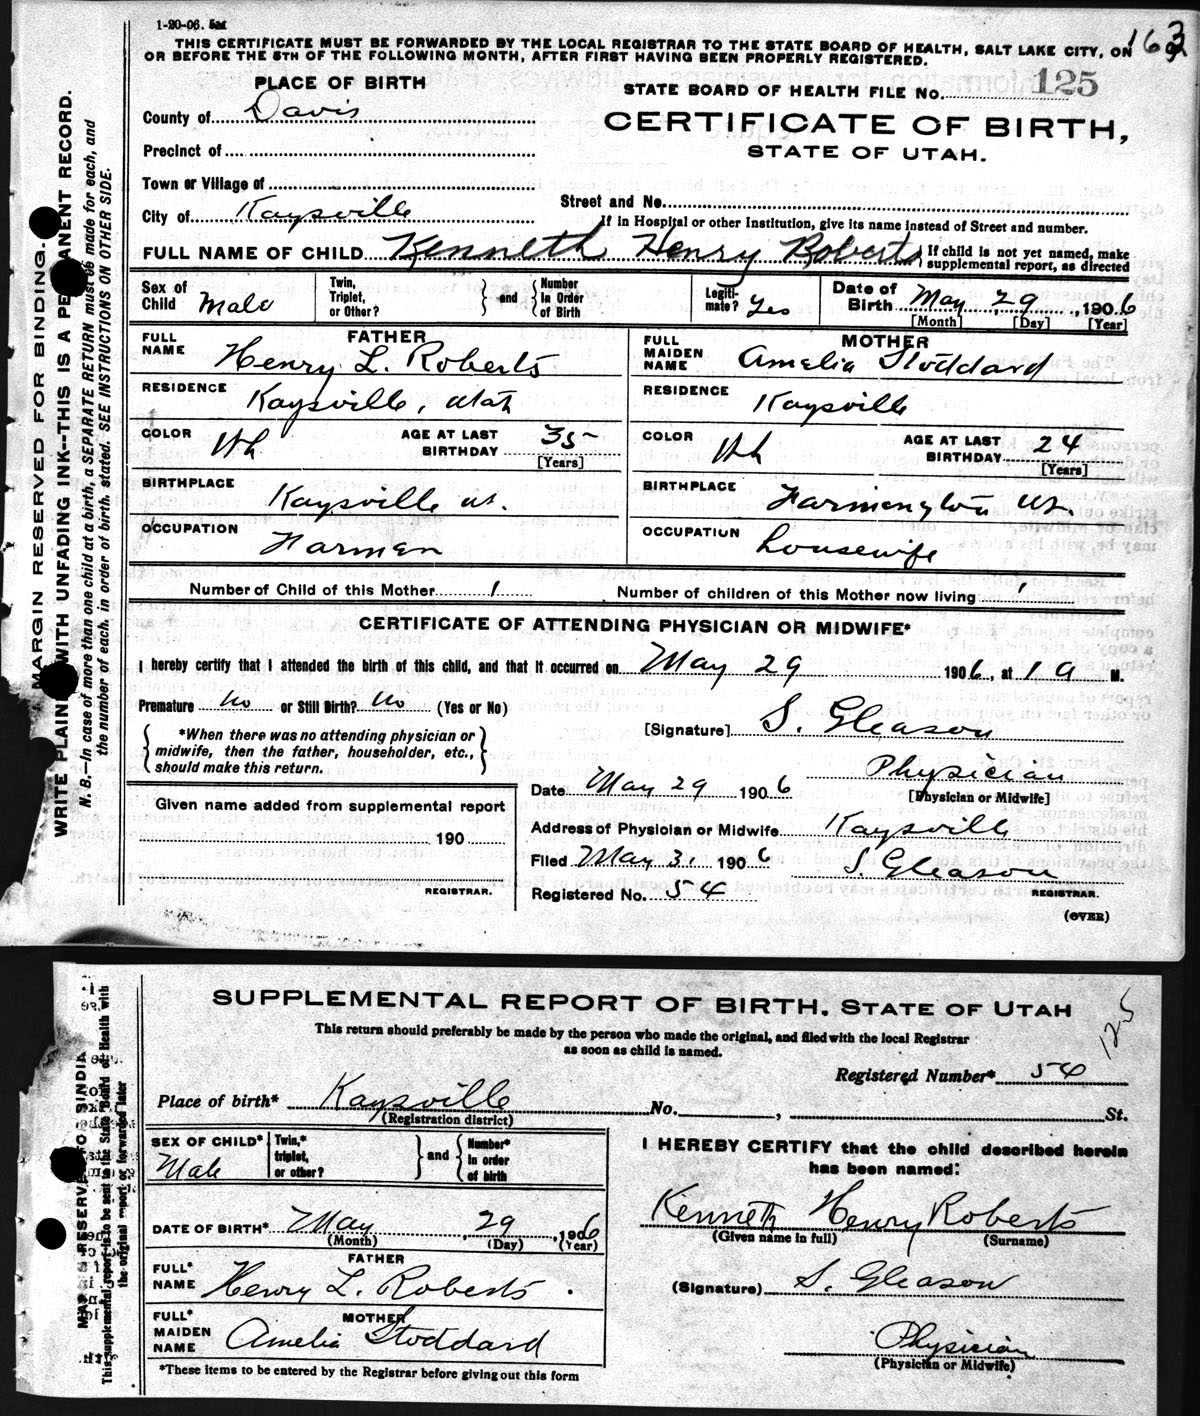 1-20-06.
163
THIS CERTIFICATE MUST BE FORWARDED BY THE LOCAL REGISTRAR TO THE STATE BOARD OF HEALTH, SALT LAKE CITY, ON
OR BEFORE THE 5TH OF THE FOLLOWING MONTH, AFTER FIRST HAVING BEEN PROPERLY REGISTERED.
MARGIN RESERVED FOR BINDING.
WRITE PLAINLY WITH UNFADING INK--THIS IS A PERMANENT RECORD.
N. B.--In case of more than one child at a birth, a SEPARATE RETURN must be made for each, and
the number of each, in order of birth, stated. SEE INSTRUCTIONS ON OTHER SIDE.
PLACE OF BIRTH
County of Davis
Precinct of
Town or Village of
City of Kaysville
STATE BOARD OF HEALTH FILE No. 125
CERTIFICATE OF BIRTH,
STATE OF UTAH.
Street and No.
If in Hospital or other Institution, give its name instead of Street and number.
FULL NAME OF CHILD Kenneth Henry Roberts If child is not yet named, make
supplemental report, as directed
Sex of Child Male
Twin, Triplet, or Other? } and { Number In Order of Birth
Legitimate? Yes
Date of Birth May 29, 1906
[Month] [Day] [Year]
FATHER
FULL NAME Henry L. Roberts
RESIDENCE Kaysville, Utah
COLOR Wh AGE AT LAST BIRTHDAY 35
[Years]
BIRTHPLACE Kaysville Ut.
OCCUPATION Farmer
MOTHER
FULL MAIDEN NAME Amelia Stoddard
RESIDENCE Kaysville
COLOR Wh AGE AT LAST BIRTHDAY 24
[Years]
BIRTHPLACE Farmington Ut.
OCCUPATION housewife
Number of Child of this Mother 1 Number of children of this Mother now living 1
CERTIFICATE OF ATTENDING PHYSICIAN OR MIDWIFE*
I hereby certify that I attended the birth of this child, and that it occurred on May 29 1906, at 1 a M.
Premature No or Still Birth? No (Yes or No)
*When there was no attending physician or
midwife, then the father, householder, etc.,
should make this return.
[Signature] S. Gleason
Physician
[Physician or Midwife]
Given name added from supplemental report
190
REGISTRAR.
Date May 29 1906
Address of Physician or Midwife Kaysville
Filed May 31 1906 S. Gleason
REGISTRAR.
Registered No. 54
(OVER)
SUPPLEMENTAL REPORT OF BIRTH. STATE OF UTAH
This return should preferably be made by the person who made the original, and filed with the local Registrar
as soon as child is named.
125
Registered Number* 54
Place of birth* Kaysville No. , St.
(Registration district)
SEX OF CHILD* Male
Twin,* triplet, or other? } and { Number* In order of birth
DATE OF BIRTH* May 29, 1906
(Month) (Day) (Year)
FATHER
FULL* NAME Henry L. Roberts.
MOTHER
FULL* MAIDEN NAME Amelia Stoddard
*These items to be entered by the Registrar before giving out this form
I HEREBY CERTIFY that the child described herein
has been named:
Kenneth Henry Roberts
(Given name in full) (Surname)
(Signature) S. Gleason
Physician
(Physician or Midwife)
This supplemental report is to be sent to the State Board of Health with
the original report or forwarded later